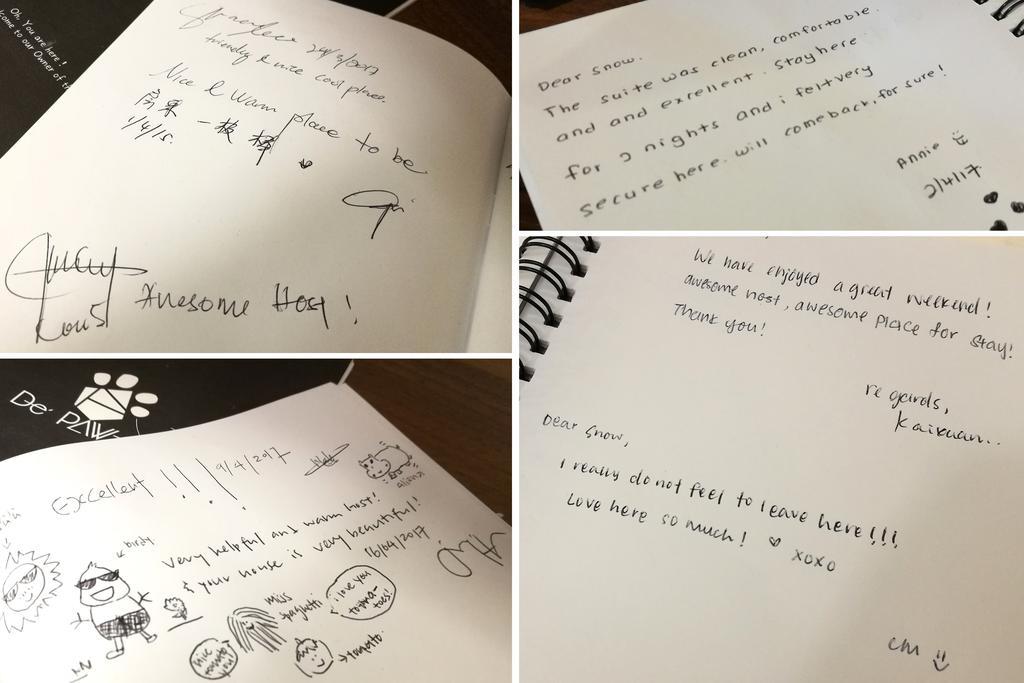 Oh, You are here!
come to our Owner of th
24/3/2017
friendly & nice cool place.
Nice & Warm place to be
房菜 一枝棒
1/4/15.
Awesome Host!
Dear Snow.
The suite was clean, comfortable.
and and exrellent. Stay here
for 2 nights and i felt very
secure here. will comeback, for sure!
Annie
2/4/17
De' PAW
Excellent !!! 9/4/2017
Very helpful and warm host!
& your house is very beautiful!
16/04/2017
birdy
miss
spaghetti
I love you
to-ma-
toes!
nice
tomato
you!
→tomato
We have enjoyed a great weekend!
awesome host, awesome place for stay!
Thank you!
regards,
Kaixuan..
Dear Snow,
I really do not feel to leave here!!!
Love here so much! ♡ xoxo